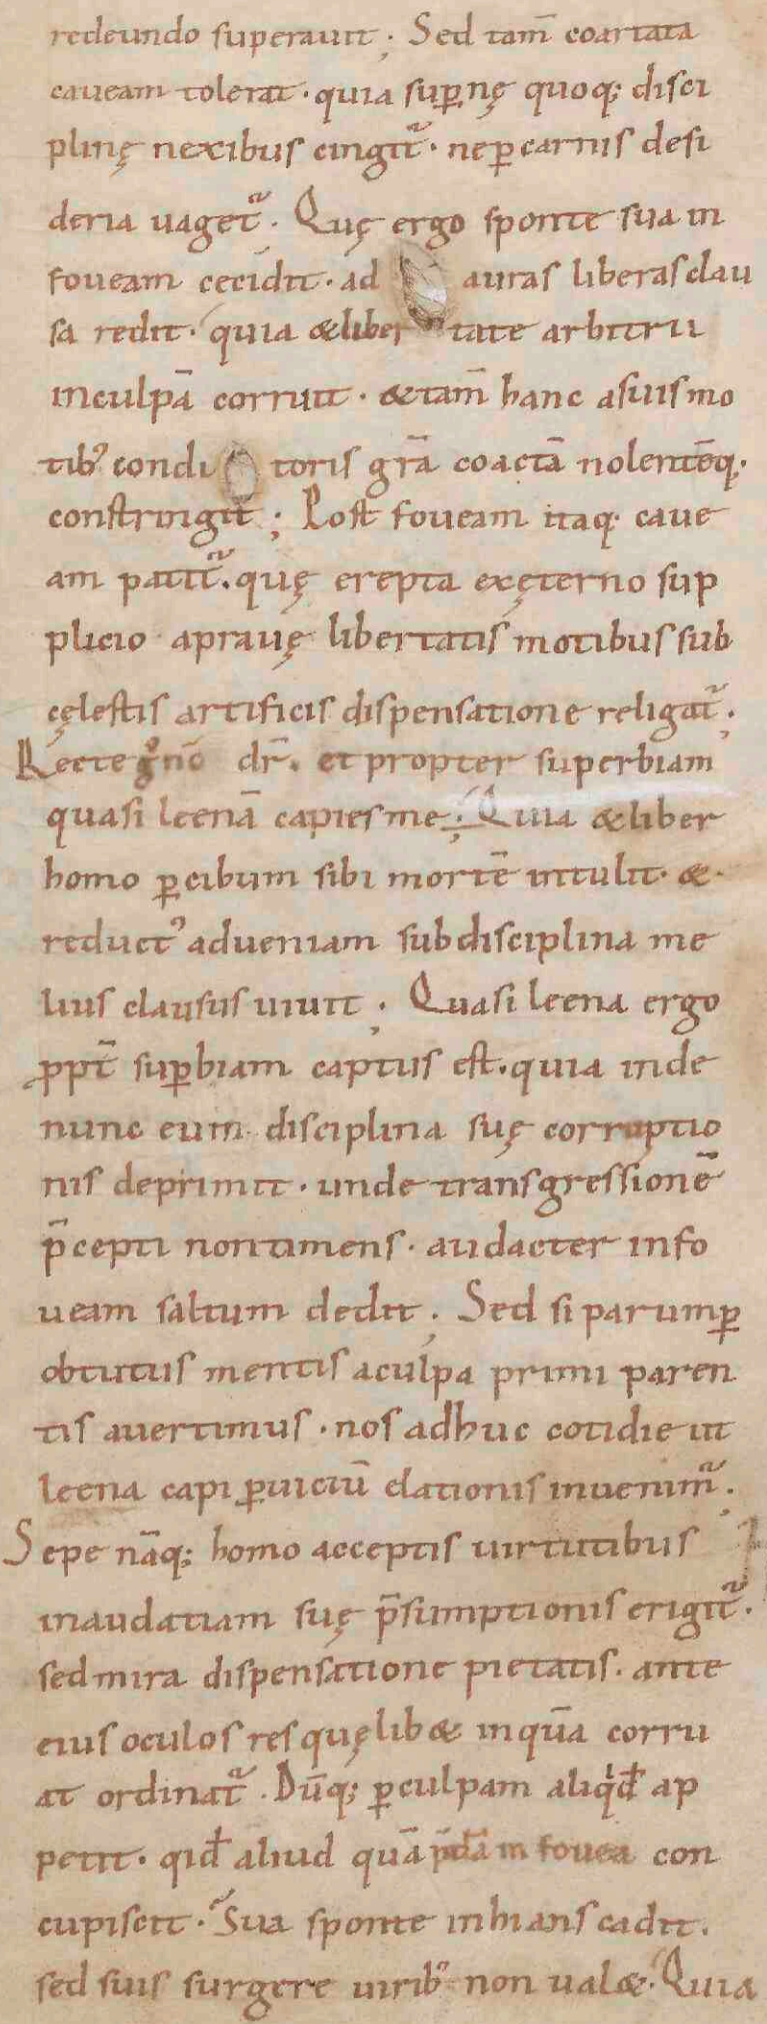 redeundo superauit; Sed tam̅ coartata
caueam tolerat· quia sup̲nę quoq; disci
plinę nexibus cingit᷑· ne p̲ carnis desi
deria uaget᷑· Quę ergo sponte sua in
foueam cecidit· ad auras liberas clau
sa redit· quia & liber tate arbitrii
in culpā corruit· & tam̅ hanc a suis mo
tib; condi toris gr̅a coactā nolentēq·
constringit; Post foueam itaq· caue
am patit᷑· quę erepta ex ęterno sup
plicio a prauę libertatis motibus sub
cęlestis artificis dispensatione religat᷑;
Recte gͦ nō dr̅· et propter superbiam
quasi leenā capies me; Quia & liber
homo p̲ cibum sibi mortē intulit· &·
reduct᾽ ad ueniam sub disciplina me
lius clausus uiuit; Quasi leena ergo
ppt̅ sup̲biam captus est· quia inde
nunc eum disciplina suę corruptio
nis deprimit· unde transgressionē
p̅cepti non timens· audacter in fo
ueam saltum dedit; Sed si parump̲
obtutus mentis a culpa primi paren
tis auertimus· nos adhuc cotidie ut
leena capi p̲ uiciū elationis inuenim᷑;
Sepe nāq; homo acceptis uirtutibus
in audatiam suę p̅sumptionis erigit᷑·
sed mira dispensatione pietatis· ante
eius oculos res quęlib& in qua̅ corru
at ordinat᷑· Dūq; p̲ culpam aliqd̅ ap
petit· qid̅ aliud quā in fouea con
cupiscit· Sua sponte inhians cadit·
sed suis surgere uirib; non ual&· Quia